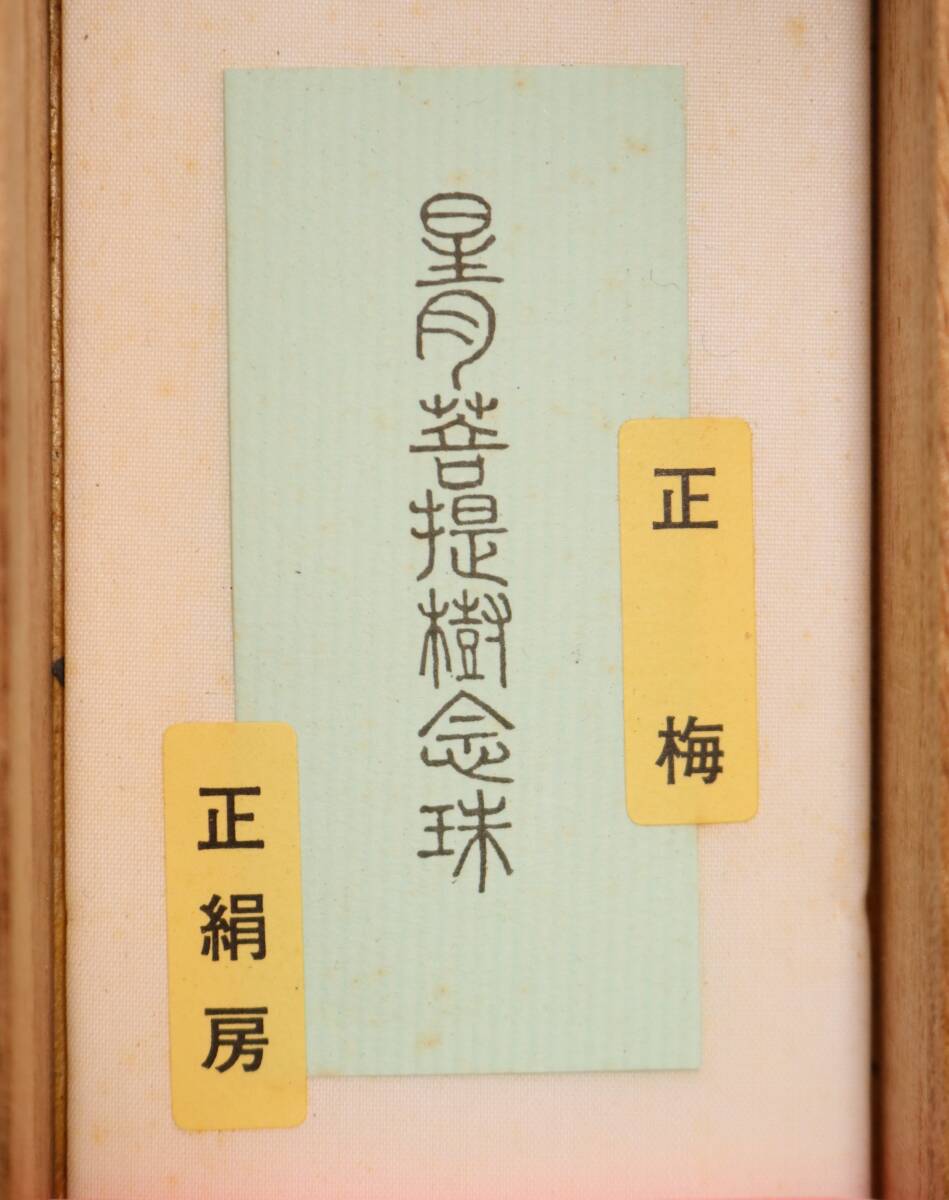 正梅
星月菩提樹念珠
正絹房